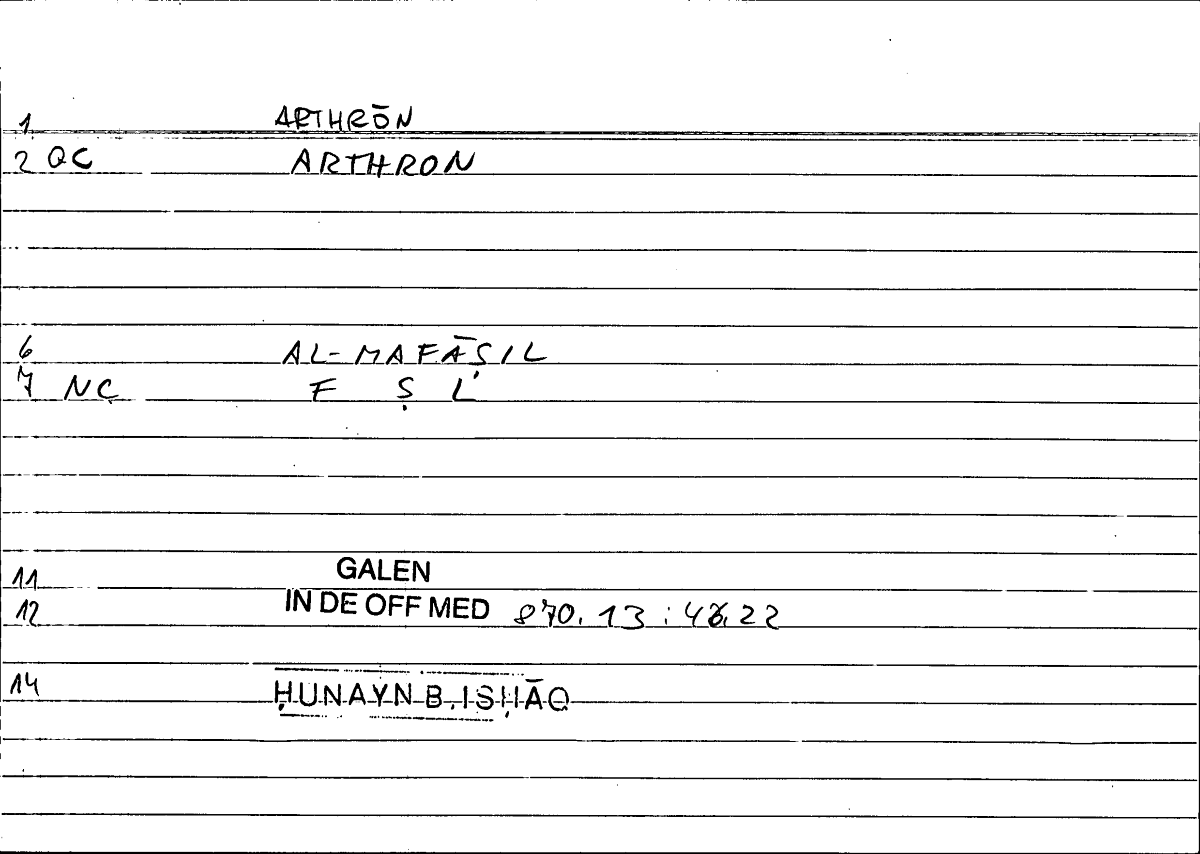 1 ARTHRŌN
2 QC ARTHRON
6 AL-MAFĀṢIL
7 NC F Ṣ L
11 GALEN
12 IN DE OFF MED 870.13:48.22
14 ḤUNAYN B. ISḤĀQ